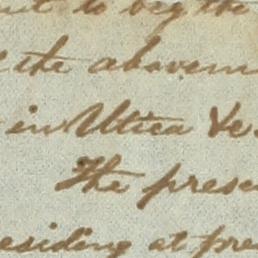 to beg the
the abovem
in Utica &c.
The prese
esiding at pre